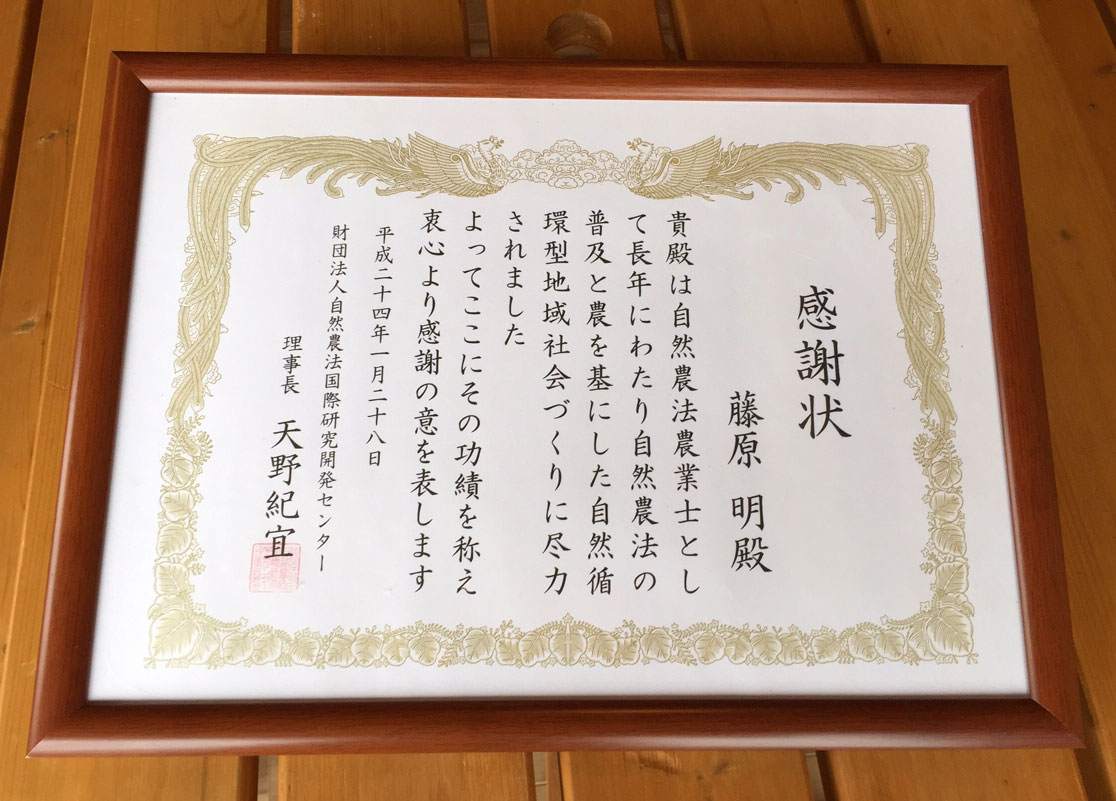 感謝状
藤原 明殿
貴殿は自然農法農業士とし
て長年にわたり自然農法の
普及と農を基にした自然循
環型地域社会づくりに尽力
されました
よってここにその功績を称え
衷心より感謝の意を表します
平成二十四年一月二十八日
財団法人自然農法国際研究開発センター
理事長 天野紀宜